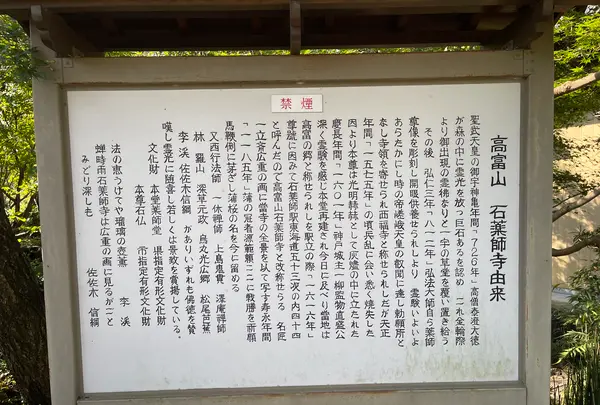 禁煙
高富山 石薬師寺由来
聖武天皇の御宇神亀年間「726年」高僧泰澄大徳
が森の中に霊光を放つ巨石あるを認め これ全輪際
より御出現の霊佛なりと一宇の草堂を覆い置き給う
その後 弘仁三年「八一二年」弘法大師自ら薬師
尊像を彫刻し開眼供養せられしより 霊験いよいよ
あらたかにし時の帝嵯峨天皇の叡聞に達し勅願所と
なし寺領を寄せられ西福寺と称せられしだが天正
年間「一五七五年」の頃兵乱に会い悉く焼失した
因より本尊は光明赫赫として灰燼の中に立たれた
慶長年間「一六〇一年」神戸城主一柳監物直盛公
深く霊験を感じ本堂再建され今日に及べり當地は
高富の郷と称せられしを駅立の際「一六一六年」
尊號に因みて石薬師駅東海道五十三次の内四十四
と呼んだので高富山石薬師寺と改称せらる 名匠
一立斎広重の画に當寺の全景を以て写す寿永年間
「一一八五年」蒲の冠者源範頼ここに戦勝を祈願
馬鞭倒に茅ざし蒲桜の名を今に留める
又西行法師 一休禅師 上島鬼貫 澤庵禅師
林 羅山 深草元政 烏丸光広郷 松尾芭蕉
李渓 佐佐木信綱 がありいずれも佛徳を賛
嘆し霊光に随喜し若しくは景致を賞揚している。
文化財 本堂薬師堂 県指定有形文化財
本尊石仏 市指定有形文化財
法の恵つけてや瑠璃の壺薫 李渓
蝉時雨石薬師寺は広重の画に見るがごと
みどり深しも 佐佐木 信綱